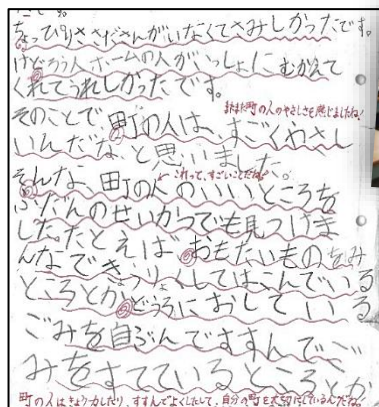 です。
ちょっぴりささださんがいなくてさみしかったです。
けどろう人ホームの人がいっしょにむかえて
くれてうれしかったです。
またまた町の人のやさしさを感じましたね!
そのことで町の人は、すごくやさし
いんだな、と思いました。
これって、すごいことだね!
そんな、町の人のいいところを
ふだんのせいかつでも見つけま
した。たとえば、おもたいものをみ
んなできょうりょくしてはこんでいる
ところとか、どうろにおしている
ごみを自ぶんですすんでご
みをすてているところとか
町の人はきょう力したり、すすんでよくしたして、自分の町を大切にしているんだね。